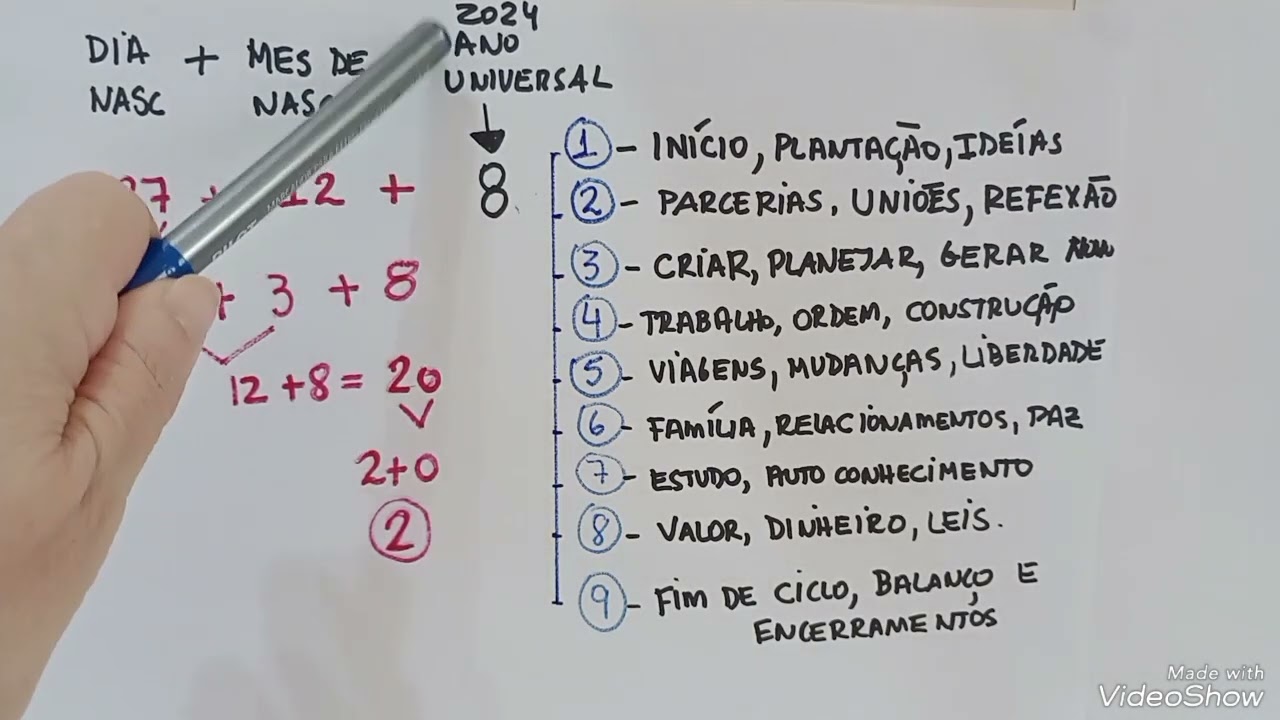 2024
DIA + MES DE ANO
NASC UNIVERSAL
12 + 8
+ 3 + 8
12 + 8 = 20
2+0
2
1 - INÍCIO, PLANTAÇÃO, IDEÍAS
2 - PARCERIAS, UNIÕES, REFEXÃO
3 - CRIAR, PLANEJAR, GERAR
4 - TRABALHO, ORDEM, CONSTRUÇÃO
5 - VIAGENS, MUDANÇAS, LIBERDADE
6 - FAMÍLIA, RELACIONAMENTOS, PAZ
7 - ESTUDO, AUTO CONHECIMENTO
8 - VALOR, DINHEIRO, LEIS.
9 - FIM DE CICLO, BALANÇO E
ENCERRAMENTOS
Made with
VideoShow